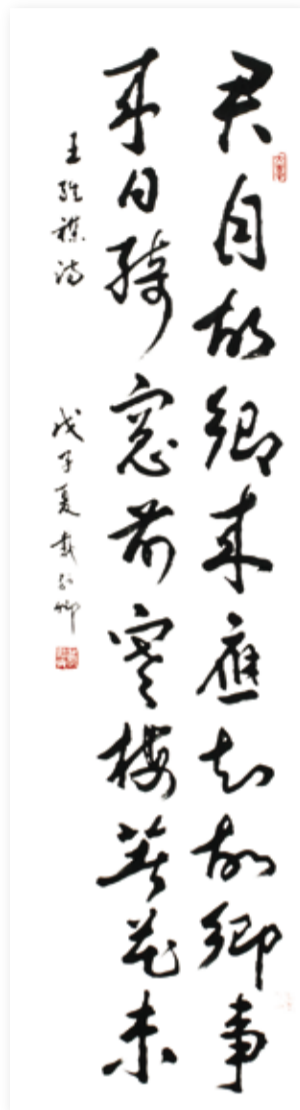 君自故鄉来應知故鄉事
来日綺窓前寒梅著花未
王維襍詩 戊子夏